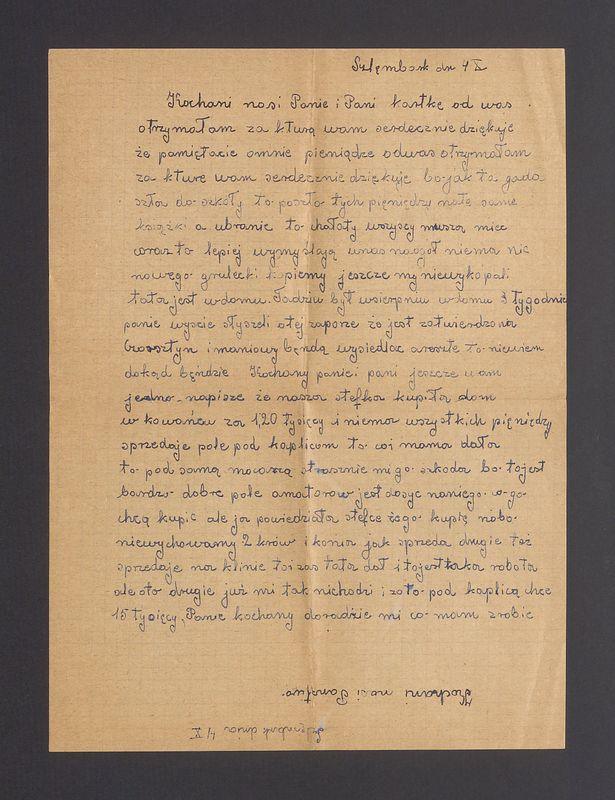 Szlembark dn 4 X
Kochani nasi Panie i Pani kartkę od was
otrzymałam za kturą wam serdecznie dziękuje
że pamiętacie omnie pieniądze odwas otrzymałam
za kture wam serdecznie dziękuję bo jak ta gada
szła do szkoły to poszło tych pieniędzy na te same
książki a ubranie to chałaty wszyscy muszą miec
coraz to lepiej wymyślają unas naogół niema nic
nowego grulecki kopiemy jeszcze my niewykopali
tata jest wdomu. Tadziu był wsierpniu wdomu 3 tygodnie
panie wyscie słyszeli otej zaporze że jest zatwierdzona
Czorsztyn imaniowy będą wysiedlac areszte to niewiem
dokąd będzie Kochany panie i pani jeszcze wam
jedno napisze że nasza stefka kupiła dom
w kowańcu za 120 tysięcy i niema wszystkich pięniędzy
sprzedaje pole pod kaplicom to co i mama dała
to pod samą mocarzą strasznie mi go szkoda bo tojest
bardzo dobre pole amatorow jest dosyc naniego co go
chcą kupic ale ja powiedziała stefce że go kupię nabo
niewychowamy 2 krów i konia jak sprzeda drugie też
sprzedaje na klinie to i zas tata dał i tojest taka robota
ale o to drugie już mi tak niechodzi; za to pod kaplicą chce
15 tysięcy, Panie kochany doradzie mi co mam zrobic
Kochani nasi Państwo
Szlembark dnia 4 X